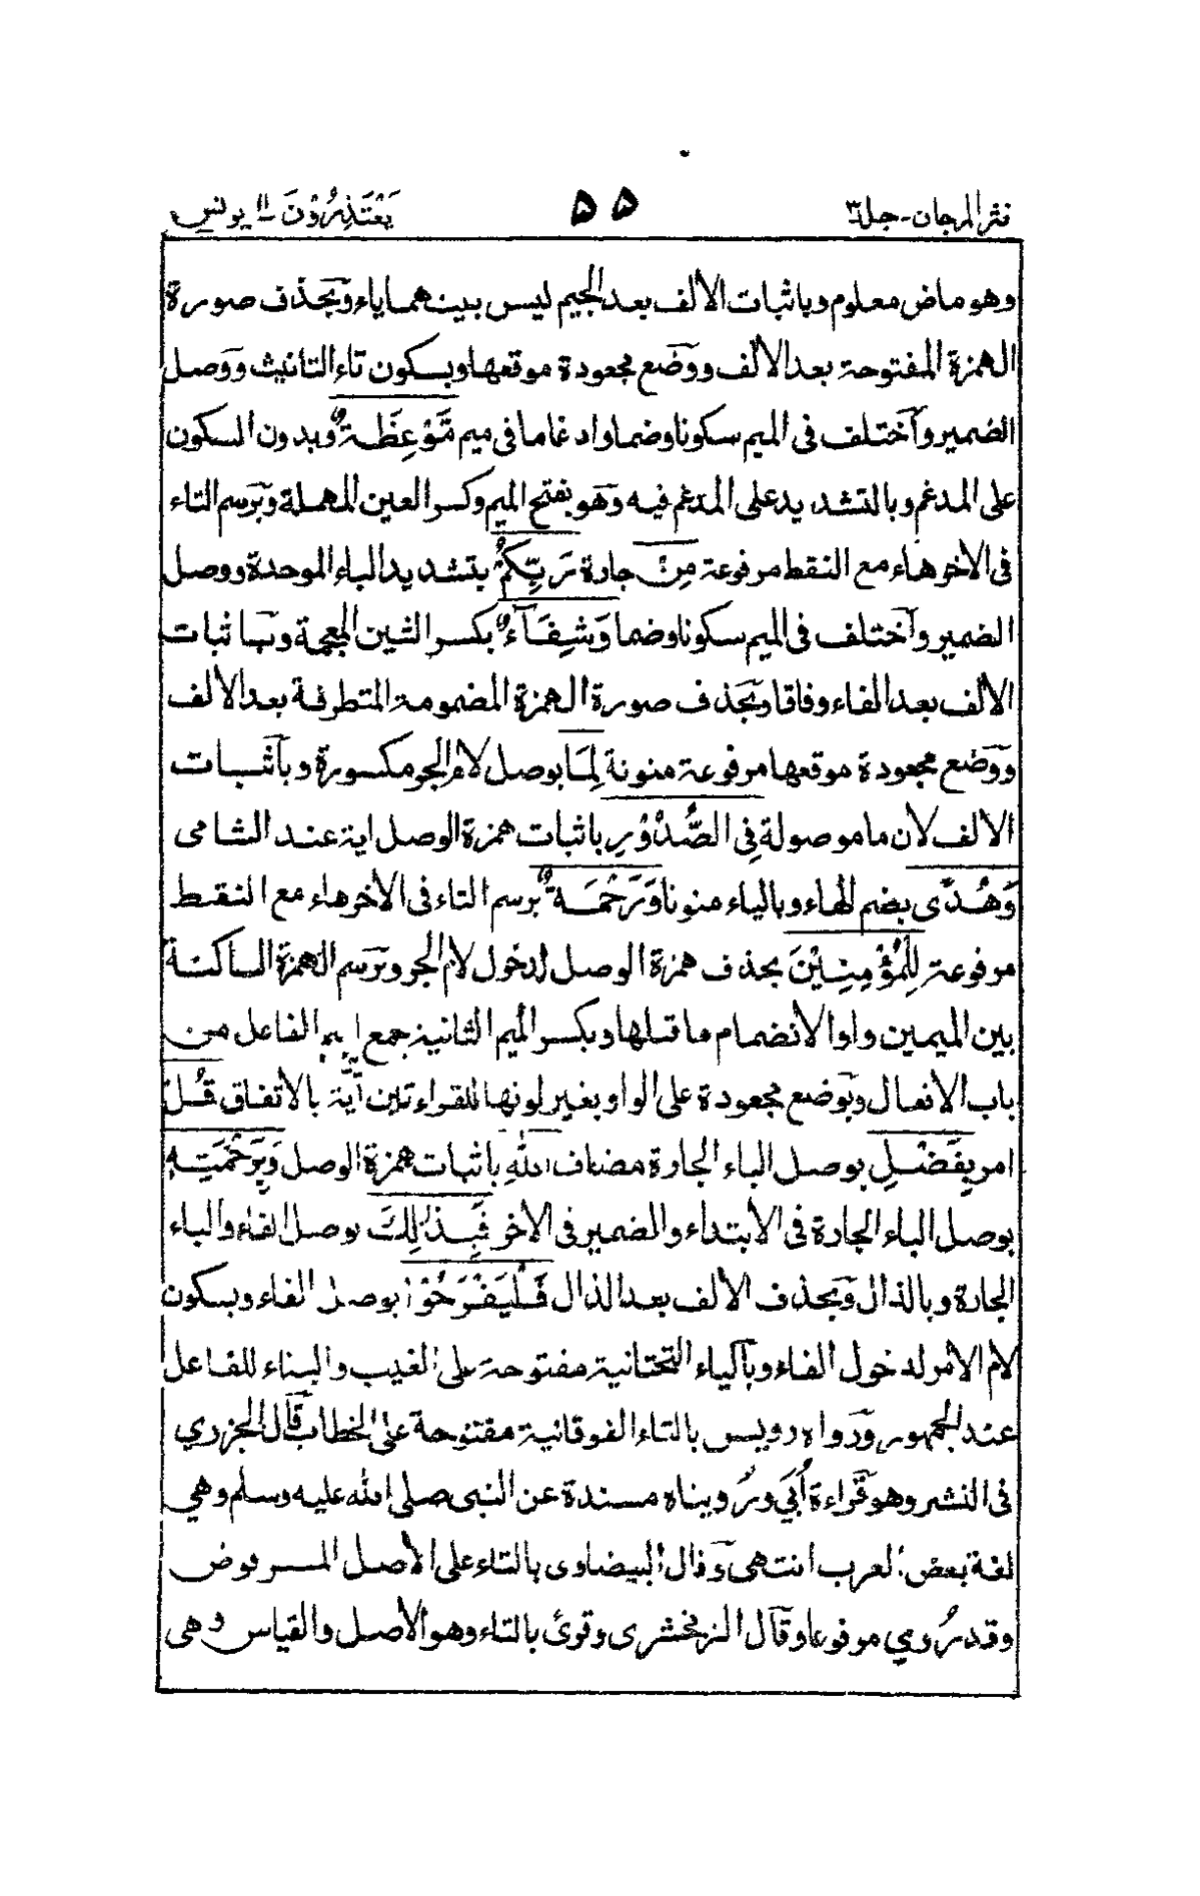 نثر المرجان - جلد ٣
۵۵
يَعْتَذِرُوْنَ ١١ يونس
وهو ماض معلوم وباثبات الالف بعد الجيم ليس بينهما ياء وَبحذف صورة
الهمزة المفتوحة بعد الالف ووَضع مجعودة موقعها وبسكون تاء التانيث ووَصل
الضمير وآختلف فى الميم سكونا وضما وادغاما فى ميم مَّوْعِظَةٌ وَبدون السكون
على المدغم وبالتشديد على المدغم فيه وَهو بفتح الميم وكسر العين المهملة وَبرسم التاء
فى الاخر هاء مع النقط مرفوعة مِنْ جارة رَبِّكُمْ بتشديد الباء الموحدة ووصل
الضمير وآختلف فى الميم سكونا وضما وَشِفَآءٌ بكسر الشين المعجمة وَباثبات
الالف بعد الفاء وفاقا وَبحذف صورة الهمزة المضمومة المتطرفة بعد الالف
ووَضع مجعودة موقعها مرفوعة منونة لِمَا بوصل لام الجر مكسورة وبآثبات
الالف لان ما موصولة فِى الصُّدُوْرِ باثبات همزة الوصل اية عند الشامى
وَهُدًى بضم الهاء وبالياء منونا وَرَحْمَةٌ برسم التاء فى الاخر هاء مع النقط
مرفوعة لِلْمُؤْمِنِيْنَ بحذف همزة الوصل لدخول لام الجر وبَرسم الهمزة الساكنة
بين الميمين واوا لانضمام ما قبلها وبكسر الميم الثانية جمع اسم الفاعل من
باب الافعال وَبوضع مجعودة على الواو بغير لونها للقراءتين آيَة بالاتفاق قُلْ
امر بِفَضْلِ بوصل الباء الجارة مضاف اللهِ باثبات همزة الوصل وَبِرَحْمَتِهٖ
بوصل الباء الجارة فى الابتداء والضمير فى الاخر فَبِذٰلِكَ بوصل الفاء والباء
الجارة وبالذال وَبحذف الالف بعد الذال فَلْيَفْرَحُوْا بوصل الفاء وبسكون
لام الامر لدخول الفاء وبآلياء التحتانية مفتوحة على الغيب والبناء للفاعل
عند الجمهور وَرواه رويس بالتاء الفوقانية مفتوحة على الخطاب قَال الجزري
فى النشر وهو قَراءة أُبَي ورُويناه مسندة عن النبى صلى الله عليه وسلم وهي
لغة بعض العرب انتهى وَقال البيضاوى بالتاء على الاصل المرفوض
وقد رُوي مرفوعا وقَال الزمخشرى وقرئ بالتاء وهو الاصل والقياس وهى